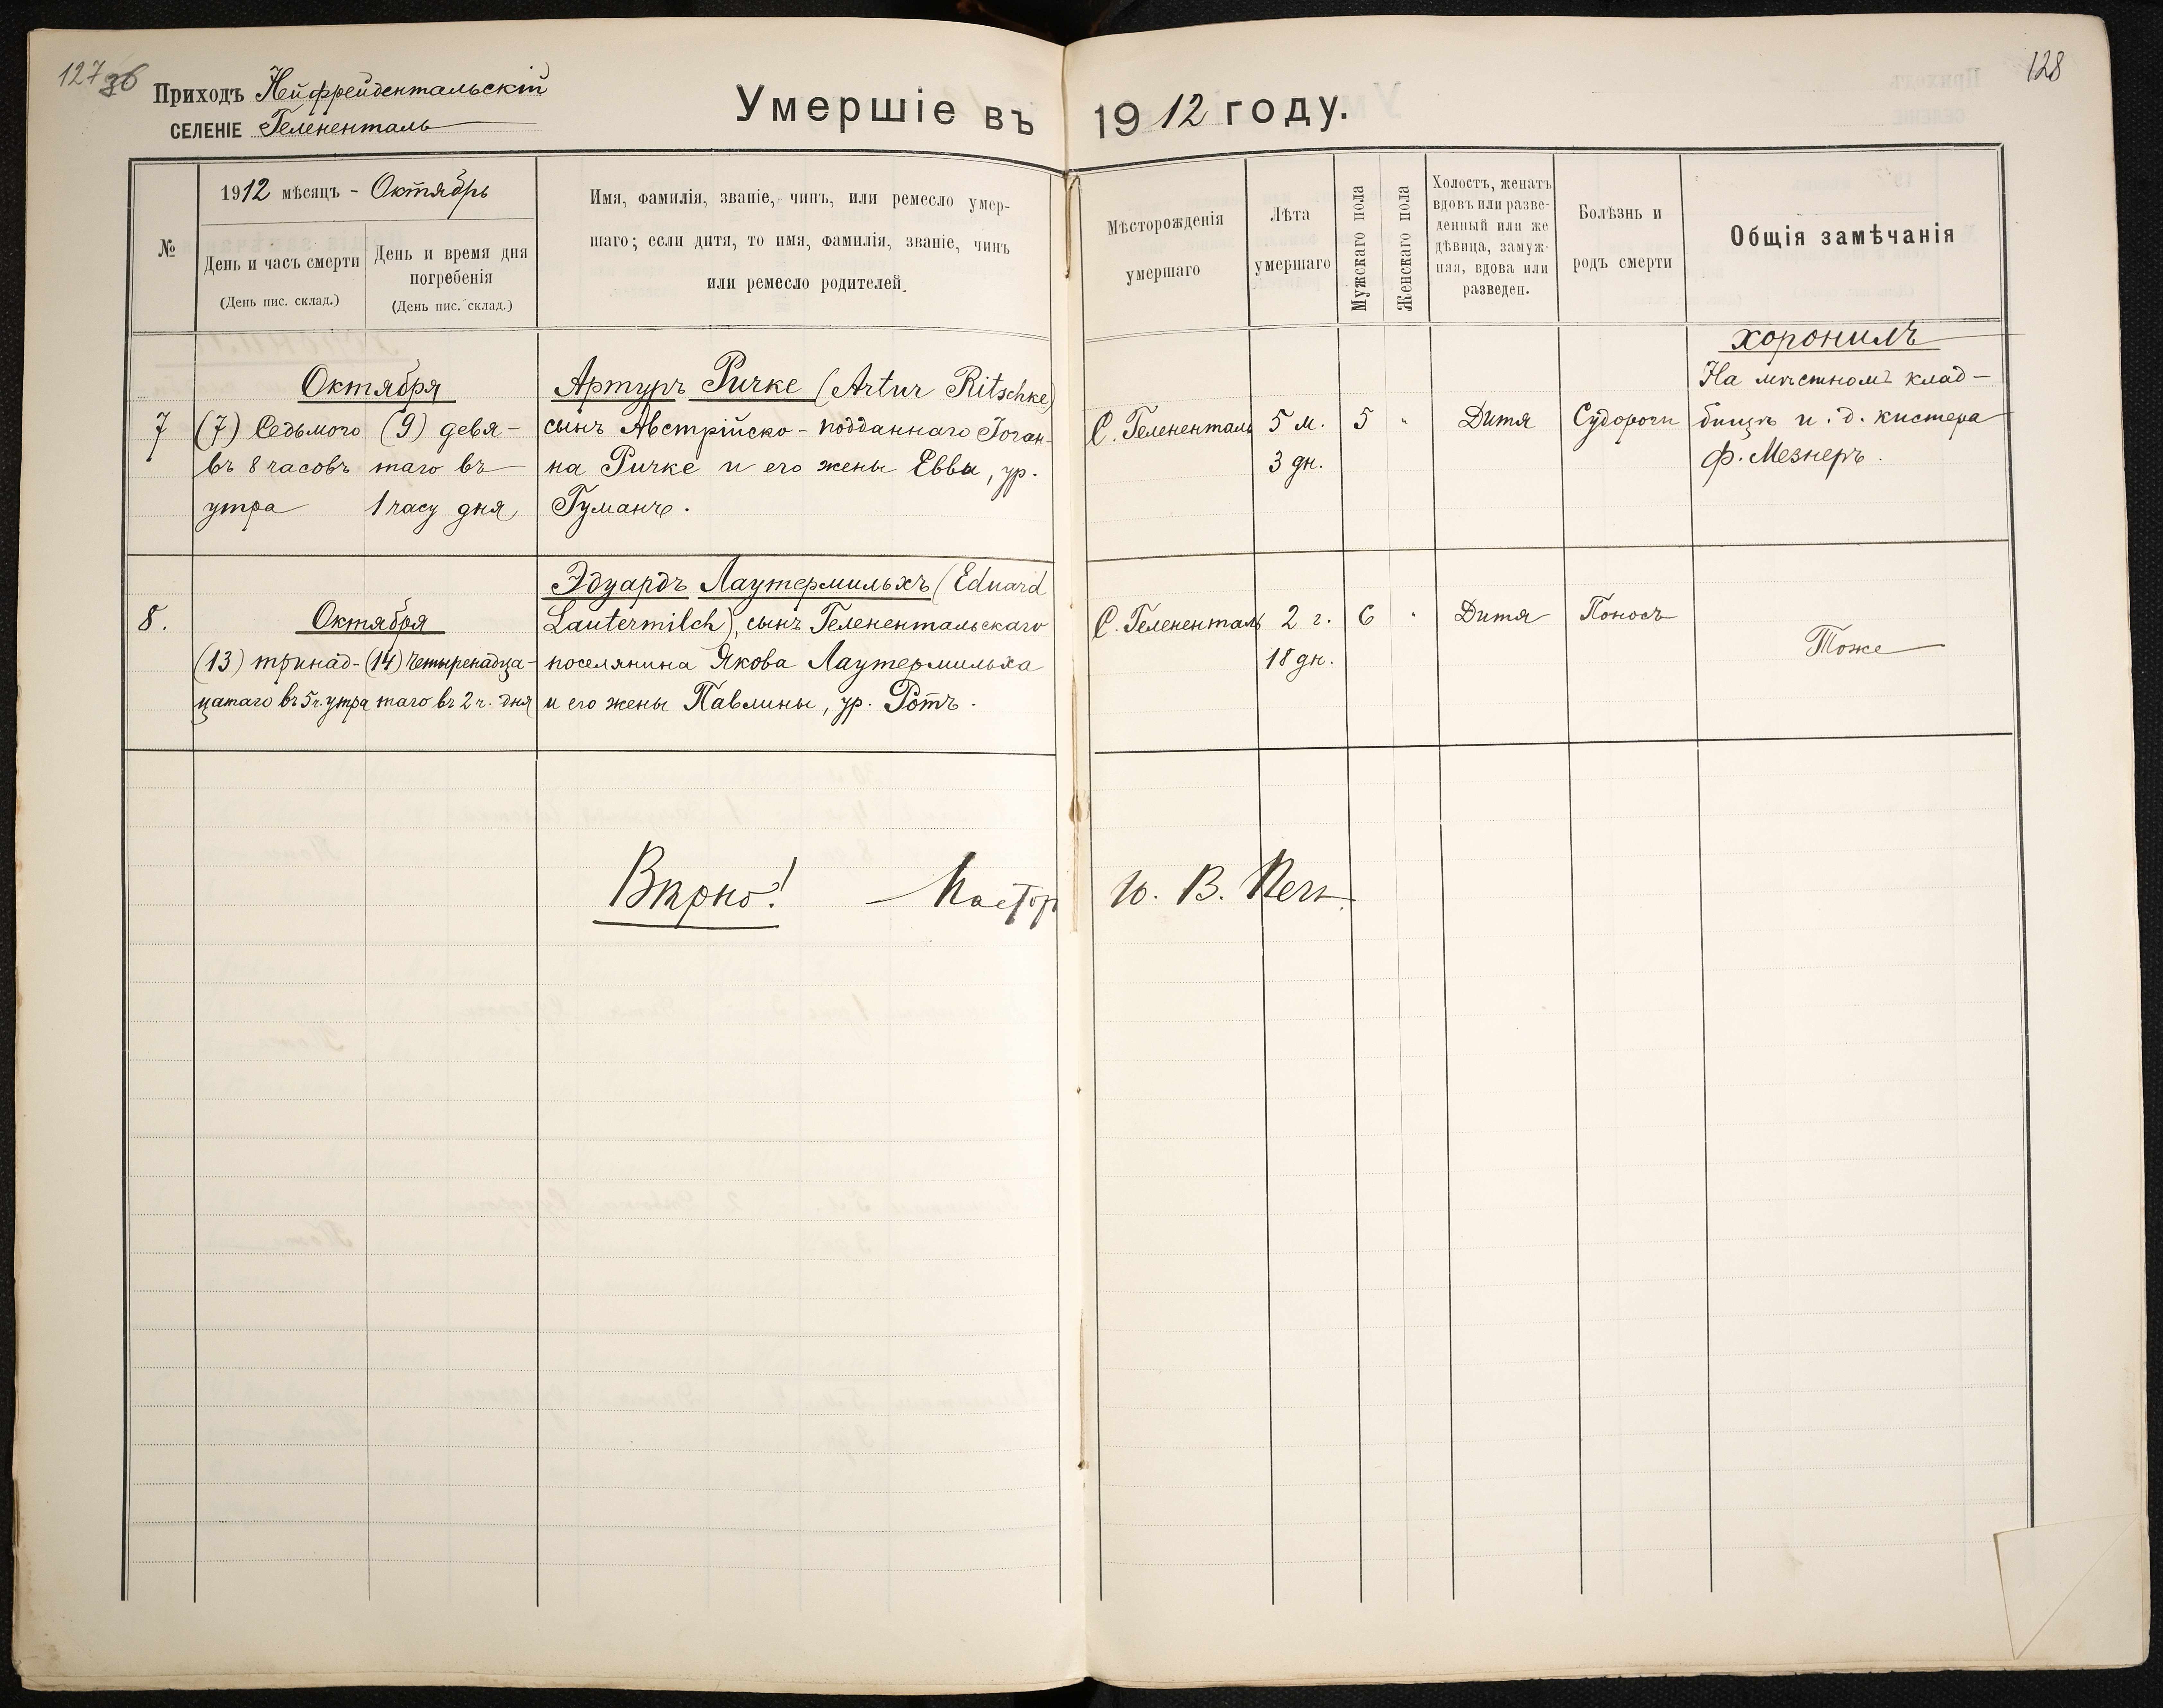 127 36
128
Приходъ Нейфрейдентальскій
СЕЛЕНІЕ Гелененталь
Умершіе въ 1912 году.
№
1912 мѣсяцъ - Октябрь
День и часъ смерти
(День пис. склад.)
День и время дня
погребенія
(День пис. склад.)
Имя, фамилія, званіе, чинъ, или ремесло умер-
шаго; если дитя, то имя, фамилія, званіе, чинъ
или ремесло родителей.
Мѣсторожденія
умершаго
Лѣта
умершаго
Мужскаго пола
Женскаго пола
Холостъ, женатъ
вдовъ или разве-
денный или же
дѣвица, замуж-
няя, вдова или
разведен.
Болѣзнь и
родъ смерти
Общія замѣчанія
7
Октября
(7) Седьмого
въ 8 часовъ
утра
(9) девя-
таго въ
1 часу дня
Артуръ Ричке (Artur Ritschke)
сынъ Австрійско-подданнаго Іоган-
на Ричке и его жены Еввы, ур.
Гуманъ.
С. Гелененталь
5 м.
3 дн.
5
"
Дитя
Судороги
хоронилъ
На мѣстномъ клад-
бищѣ и. д. кистера
Ф. Мезнеръ.
8.
Октября
(13) тринад-
цатаго въ 5 ч. утра
(14) четыренадца-
таго въ 2 ч. дня
Эдуардъ Лаутермильхъ (Eduard
Lautermilch), сынъ Геленентальскаго
поселянина Якова Лаутермильха
и его жены Павлины, ур. Ротъ.
С. Гелененталь
2 г.
18 дн.
6
"
Дитя
Поносъ
Тоже
Вѣрно! Пастор
В.